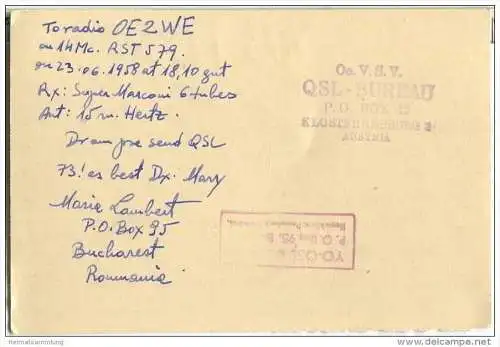 To radio OE2WE
on 14 Mc. RST 579.
on 23.06.1958 at 18,10 gmt
Rx: Super Marconi 6 tubes
Ant: 15 m. Hertz.
Dr om pse send QSL
73! es best Dx. Mary
Maria Lambert
P.O.Box 95
Bucharest
Roumania
Oe. V. S. V.
QSL-BUREAU
P. O. BOX
KLOSTERNEUBURG 2
AUSTRIA
YO-QSL
P. O. Box 95, B
heimatsammlung
www.delcampe.net